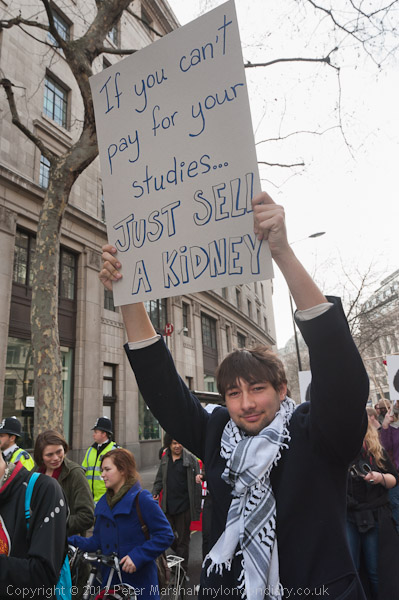 If you can't
pay for your
studies...
JUST SELL
A KIDNEY
Copyright © 2012 Peter Marshall mylondondiary.co.uk